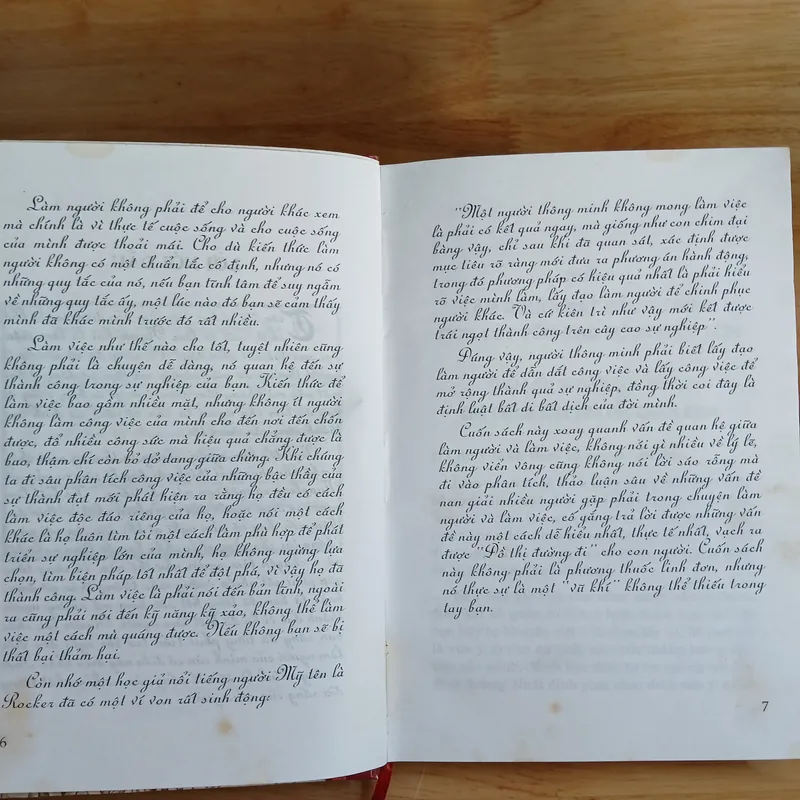 Làm người không phải để cho người khác xem
mà chính là vì thực tế cuộc sống và cho cuộc sống
của mình được thoải mái. Cho dù kiến thức làm
người không có một chuẩn tắc cố định, nhưng nó có
những quy tắc của nó, nếu bạn tĩnh tâm để suy ngẫm
về những quy tắc ấy, một lúc nào đó bạn sẽ cảm thấy
mình đã khác mình trước đó rất nhiều.
Làm việc như thế nào cho tốt, tuyệt nhiên cũng
không phải là chuyện dễ dàng, nó quan hệ đến sự
thành công trong sự nghiệp của bạn. Kiến thức để
làm việc bao gồm nhiều mặt, nhưng không ít người
không làm công việc của mình cho đến nơi đến chốn
được, đổ nhiều công sức mà hiệu quả chẳng được là
bao, thậm chí còn bỏ dở dang giữa chừng. Khi chúng
ta đi sâu phân tích công việc của những bậc thầy của
sự thành đạt mới phát hiện ra rằng họ đều có cách
làm việc độc đáo riêng của họ, hoặc nói một cách
khác là họ luôn tìm tòi một cách làm phù hợp để phát
triển sự nghiệp lớn của mình, họ không ngừng lựa
chọn, tìm biện pháp tốt nhất để đột phá, vì vậy họ đã
thành công. Làm việc là phải nói đến bản lĩnh, ngoài
ra cũng phải nói đến kỹ năng kỹ xảo, không thể làm
việc một cách mù quáng được. Nếu không bạn sẽ bị
thất bại thảm hại.
Còn nhớ một học giả nổi tiếng người Mỹ tên là
Rocker đã có một ví von rất sinh động:
6
"Một người thông minh không mong làm việc
là phải có kết quả ngay, mà giống như con chim đại
bàng vậy, chỉ sau khi đã quan sát, xác định được
mục tiêu rõ ràng mới đưa ra phương án hành động,
trong đó phương pháp có hiệu quả nhất là phải hiểu
rõ việc mình làm, lấy đạo làm người để chinh phục
người khác. Và cứ kiên trì như vậy mới kết được
trái ngọt thành công trên cây cao sự nghiệp".
Đúng vậy, người thông minh phải biết lấy đạo
làm người để dẫn dắt công việc và lấy công việc để
mở rộng thành quả sự nghiệp, đồng thời coi đây là
định luật bất di bất dịch của đời mình.
Cuốn sách này xoay quanh vấn đề quan hệ giữa
làm người và làm việc, không nói gì nhiều về lý lẽ,
không viển vông cũng không nói lời sáo rỗng mà
đi vào phân tích, thảo luận sâu về những vấn đề
nan giải nhiều người gặp phải trong chuyện làm
người và làm việc, cố gắng trả lời được những vấn
đề này một cách dễ hiểu nhất, thực tế nhất, vạch ra
được "Đồ thị đường đi" cho con người. Cuốn sách
này không phải là phương thuốc linh đơn, nhưng
nó thực sự là một "vũ khí" không thể thiếu trong
tay bạn.
7